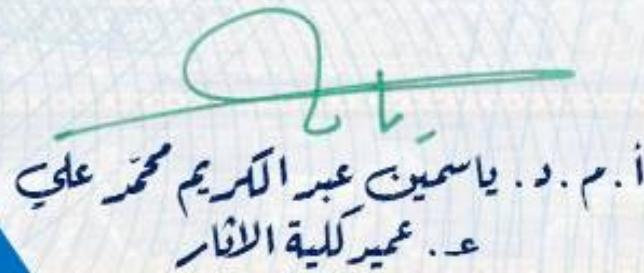 أ.م.د. ياسمين عبد الكريم محمد علي
عـ. عميد كلية الآثار